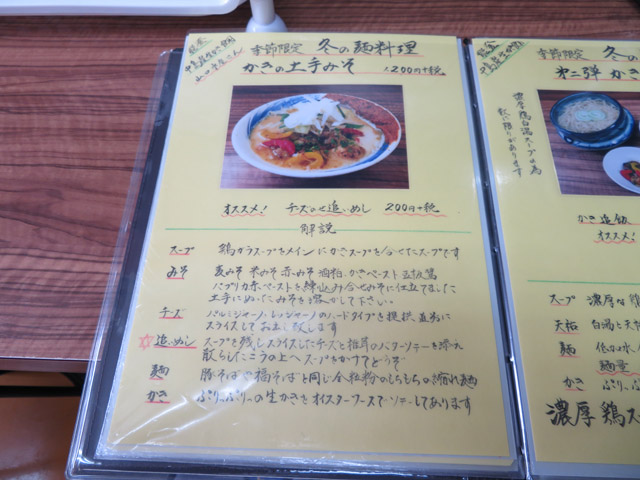 季節限定 冬の麺料理
かきの土手みそ 1200円+税
オススメ! チーズのせ追いめし 200円+税
解説
スープ 鶏ガラスープをメインにかきスープを合せたスープです
みそ 麦みそ 米みそ 赤みそ 酒粕 かきペースト
パプリカ赤ペーストを練込み合せみそに仕立てました
土手にぬったみそを溶かして下さい
チーズ パルミジャーノ レッジャーノのハードタイプを提供直前に
スライスしてお出し致します
追いめし スープを残しスライスしたチーズと椎茸のバターソテーを
散らしたこうの上へスープをかけてどうぞ
麺 豚そば 福そばと同じ全粒粉のもちもちの縮れ麺
かき ぷりっぷりっの生かきをオイスターソースでソテーしてあります
季節限定 冬の
第二弾 かき
濃厚鶏白湯スープの為
数に限りがあります
かき追飯
オススメ!
スープ 濃厚な鶏
天祐 白湯と天
麺
麺量
かき ぷりっぷり
濃厚鶏ス